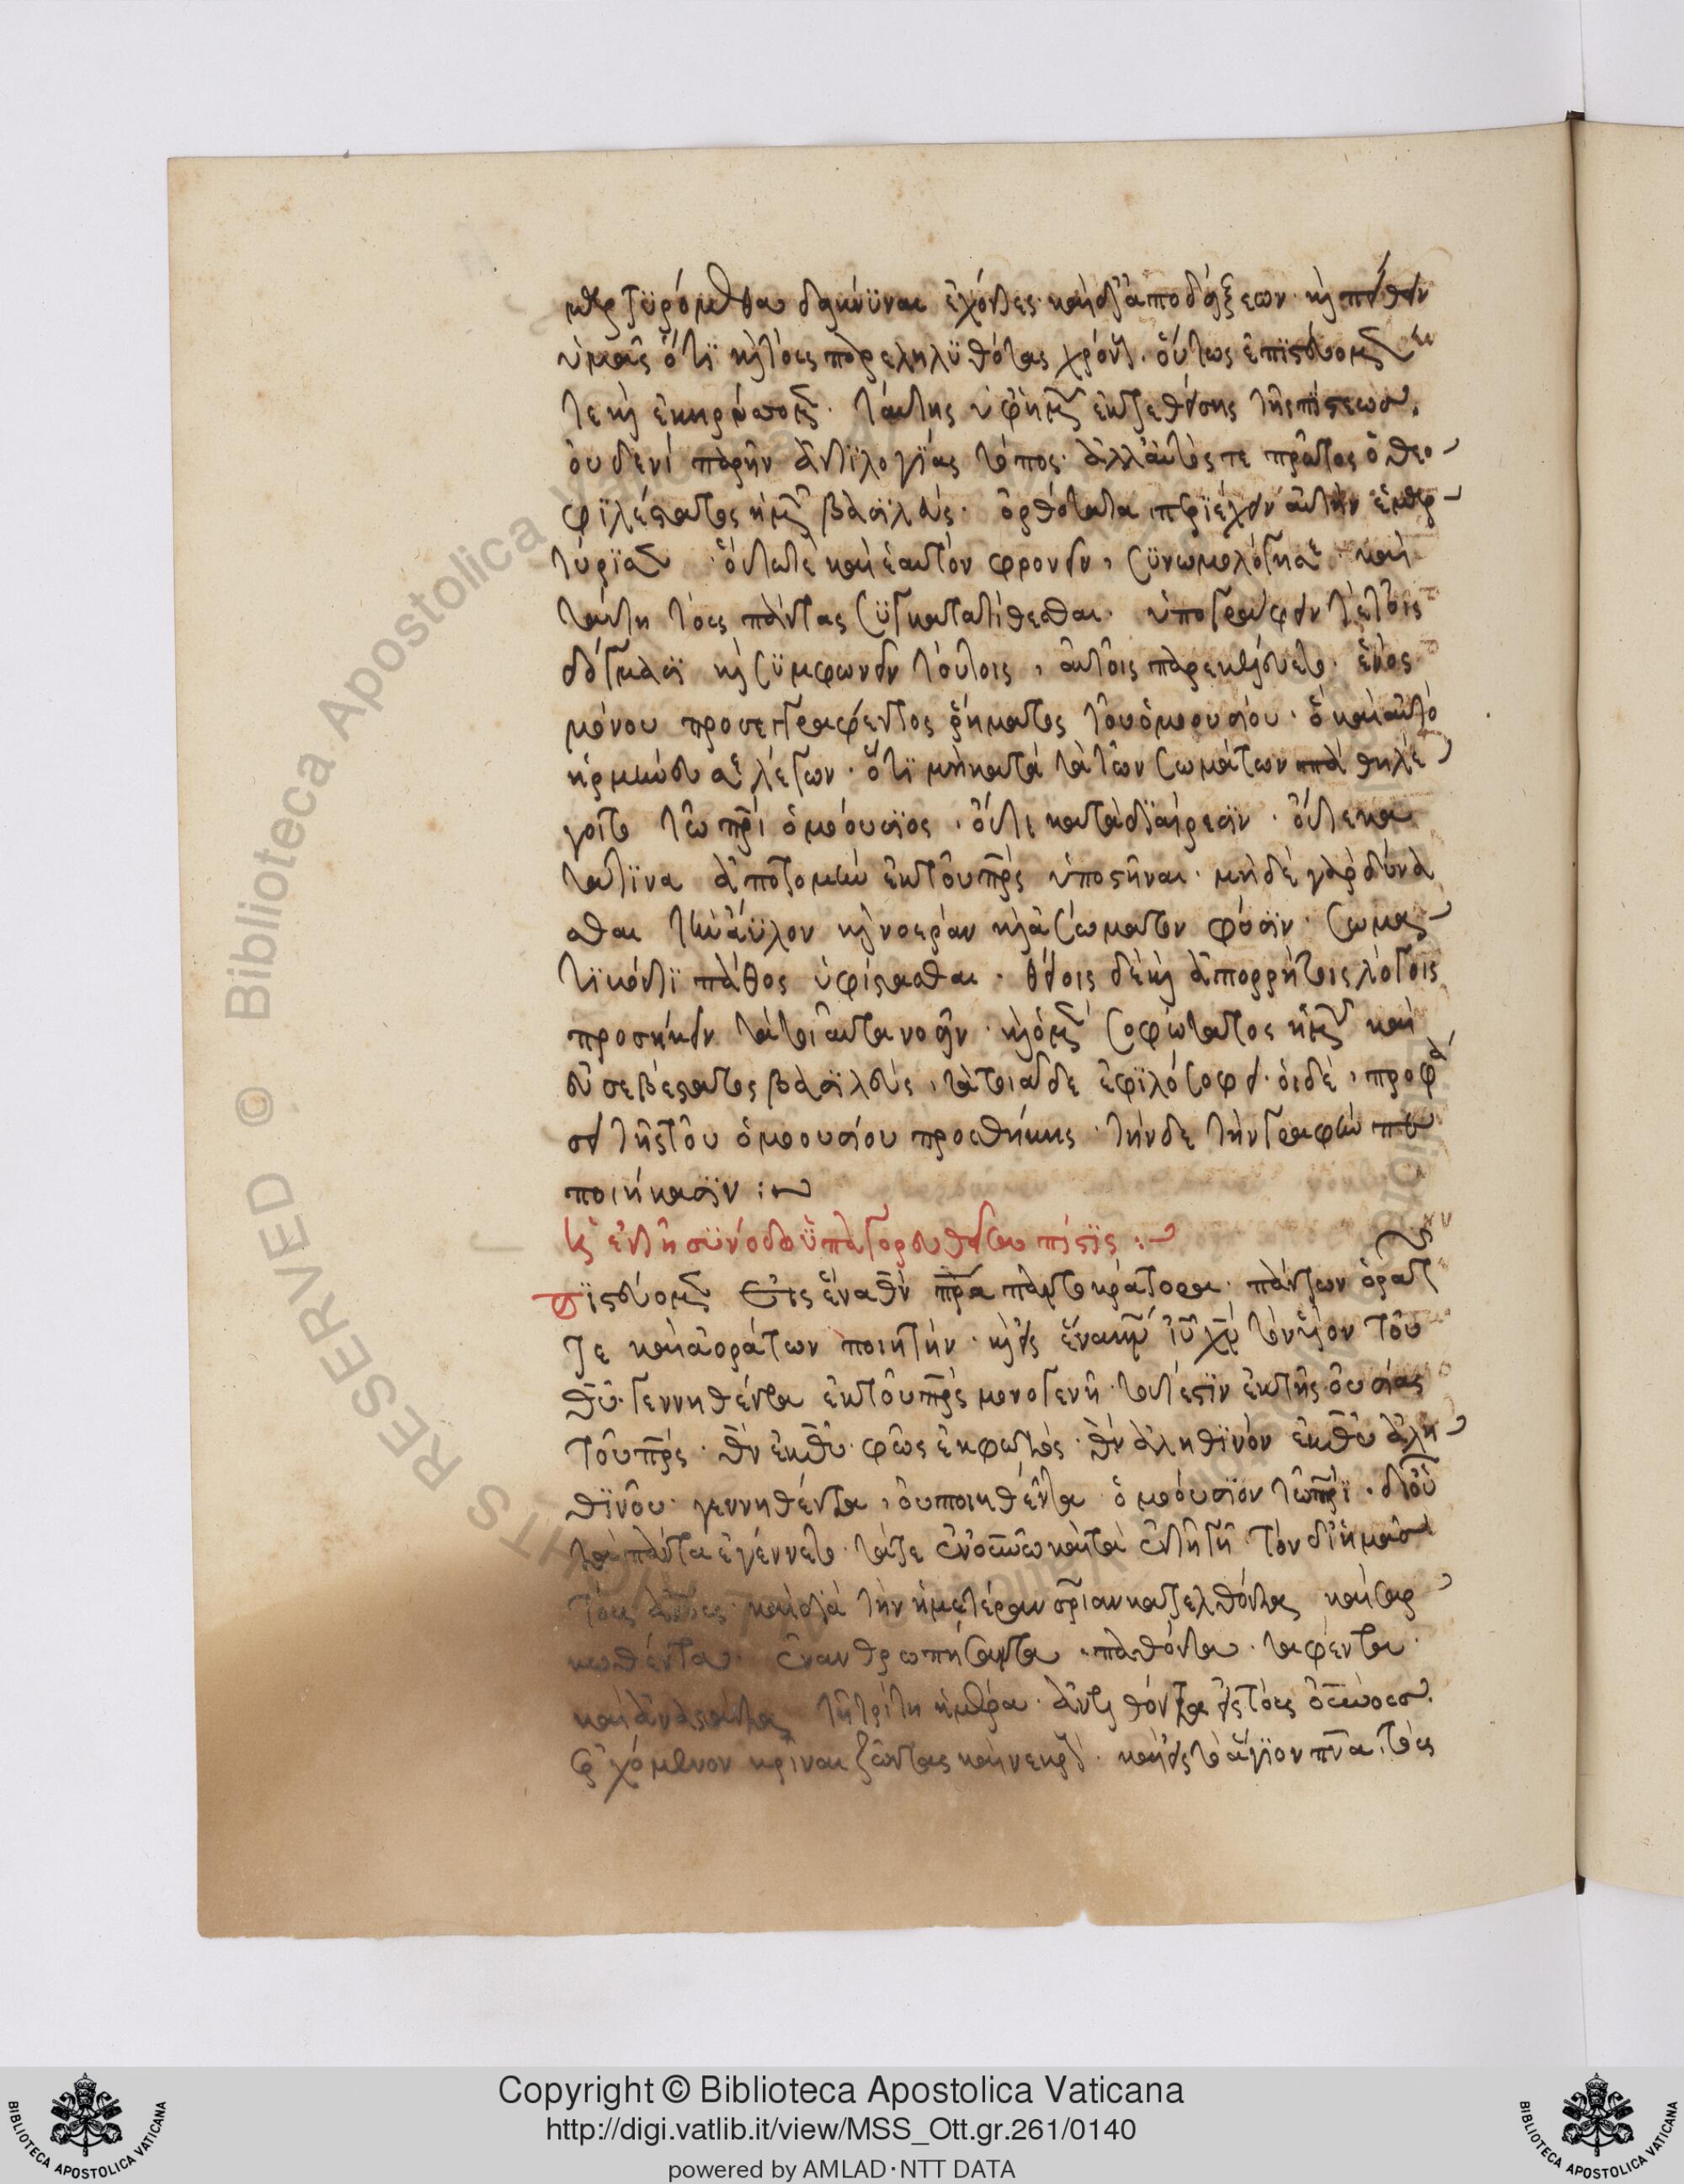 μαρτυρόμεθα δεικνύναι ἔχοντες καὶ δι' ἀποδείξεων· καὶ πείθειν
ὑμᾶς ὅτι καὶ τοὺς παρεληλυθότας χρόνους· οὕτως ἐπιστεύομέν
τε καὶ ἐκηρύσσομεν· ταύτης ὑφ' ἡμῶν ἐκτεθείσης τῆς πίστεως,
οὐδενὶ παρῆν ἀντιλογίας τόπος· ἀλλ' αὐτός τε πρῶτος ὁ θεο
φιλέστατος ἡμῶν βασιλεύς· ὀρθότατα περιέχειν αὐτὴν ἐμαρ
τύρισεν· οὕτω τὲ καὶ ἑαυτὸν φρονεῖν, συνωμολόγησε· καὶ
ταύτη τοὺς πάντας συγκατατίθεσθαι· ὑπογράφειν τε τοῖς
δόγμασι καὶ συμφωνεῖν τούτοις, αὐτοῖς παρεκελεύετο· ἑνὸς
μόνου προσεγγραφέντος ῥήματος τοῦ ὁμοουσίου· ὃ καὶ αὐτὸ
ἡρμήνευσε λέγων· ὅτι μὴ κατὰ τὰ τῶν σωμάτων πάθη λέ
γοιτο τῷ πρὶ ὁμοούσιος, οὔτε κατὰ διαίρεσιν· οὔτε κα
τά τινα ἀποτομὴν ἐκ τοῦ πρς ὑποστῆναι· μηδὲ γὰρ δύνα
σθαι τὴν ἄϋλον καὶ νοερὰν καὶ ἀσώματον φύσιν· σωμα
τικόν τι πάθος ὑφίστασθαι· θείοις δὲ καὶ ἀπορρήτοις λόγοις
προσήκειν τὰ τοιαῦτα νοεῖν· καὶ ὁ μὲν σοφώτατος ἡμῶν καὶ
εὐσεβέστατος βασιλεύς, τὰ τοιάδε ἐφιλοσόφει· οἱ δὲ, προφά
σει τῆς τοῦ ὁμοουσίου προσθήκης· τήνδε τὴν γραφὴν πε
ποιήκασιν :~
Ἡ ἐν τῇ συνόδῳ ὑπαγορευθεῖσα πίστις :~
Πιστεύομεν εἰς ἕνα θν πρα παντοκράτορα· πάντων ὁρατῶν
τε καὶ ἀοράτων ποιητήν· καὶ εἰς ἕνα κν ιν χν τὸν υἱὸν τοῦ
θυ· γεννηθέντα ἐκ τοῦ πρς μονογενῆ· τουτέστιν ἐκ τῆς οὐσίας
τοῦ πρς· θν ἐκ θυ· φῶς ἐκ φωτός· θν ἀληθινὸν ἐκ θυ ἀλη
θινοῦ· γεννηθέντα, οὐ ποιηθέντα ὁμοούσιον τῷ πρι· δι' οὗ
τὰ πάντα ἐγένετο· τά τε ἐν οὐνῷ καὶ τὰ ἐν τῇ γῇ τὸν δι' ἡμᾶς
τοὺς ἀνους· καὶ διὰ τὴν ἡμετέραν σριαν κατελθόντα καὶ σαρ
κωθέντα· ἐνανθρωπήσαντα· παθόντα· ταφέντα·
καὶ ἀναστάντα τῇ τρίτῃ ἡμέρα· ἀνελθόντα εἰς τοὺς οὐνούς·
ἐρχόμενον κρῖναι ζῶντας καὶ νεκρούς· καὶ εἰς τὸ ἅγιον πνα· τοὺς
Copyright © Biblioteca Apostolica Vaticana
http://digi.vatlib.it/view/MSS_Ott.gr.261/0140
powered by AMLAD·NTT DATA